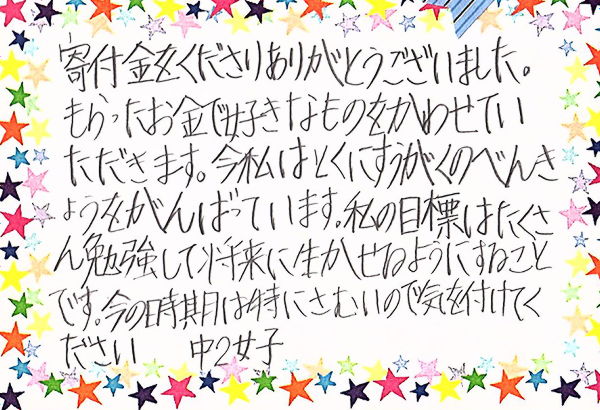 寄付金をくださりありがとうございました。
もらったお金で好きなものをかわせてい
ただきます。今私はとくにすうがくのべんき
ようをがんばっています。私の目標はたくさ
ん勉強して将来に生かせるようにすること
です。今の時期は特にさむいので気を付けてく
ださい 中2女子